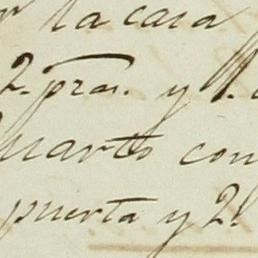 la casa
2. pzas. y 1.
cuarto con
puerta y 2